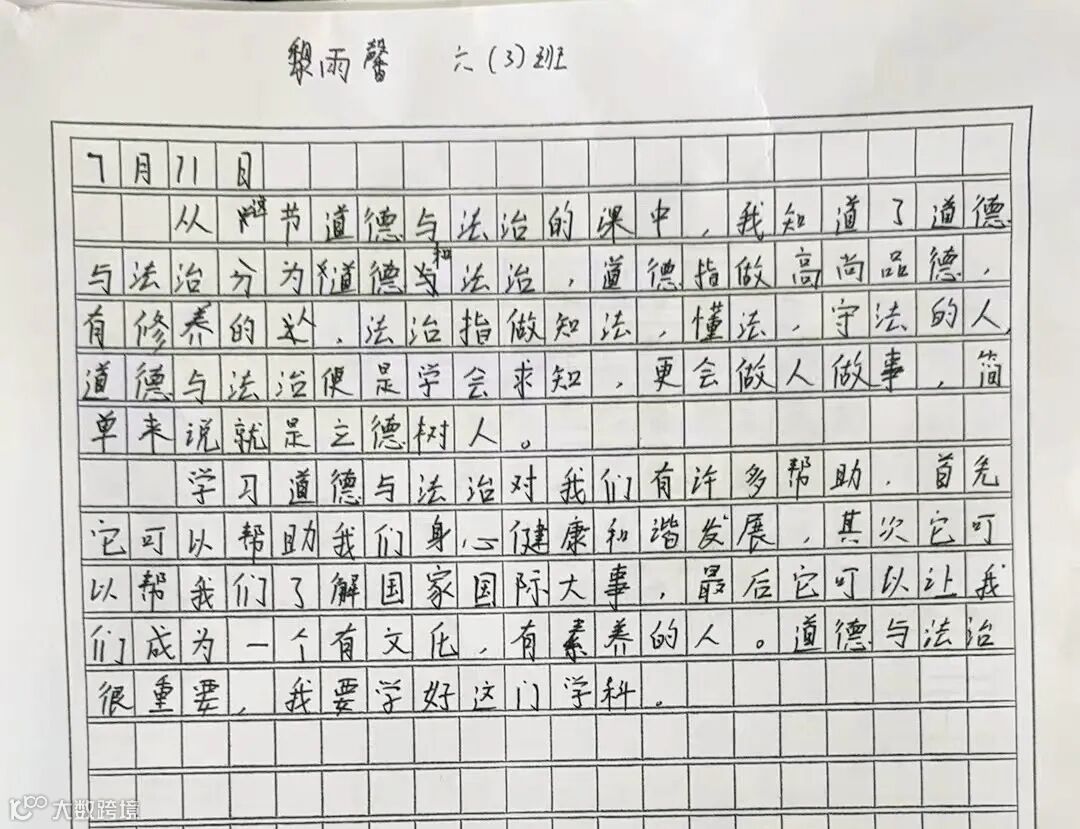 黎雨馨 六(3)班
7月11日
从这节道德与法治的课中，我知道了道德
与法治分为道德和法治，道德指做高尚品德，
有修养的人，法治指做知法，懂法，守法的人，
道德与法治便是学会求知，更会做人做事，简
单来说就是立德树人。
学习道德与法治对我们有许多帮助，首先
它可以帮助我们身心健康和谐发展，其次它可
以帮我们了解国家国际大事，最后它可以让我
们成为一个有文化，有素养的人。道德与法治
很重要，我要学好这门学科。
大数跨境